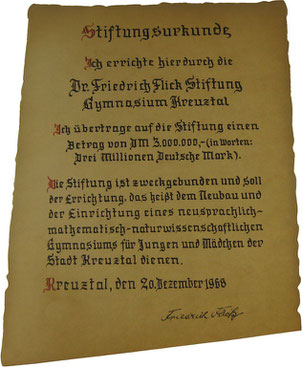 Stiftungsurkunde
Ich errichte hierdurch die
Dr. Friedrich Flick Stiftung
Gymnasium Kreuztal
Ich übertrage auf die Stiftung einen
Betrag von DM 3.000.000,-(in Worten:
Drei Millionen Deutsche Mark).
Die Stiftung ist zweckgebunden und soll
der Errichtung, das heißt dem Neubau und
der Einrichtung eines neusprachlich-
mathematisch-naturwissenschaftlichen
Gymnasiums für Jungen und Mädchen der
Stadt Kreuztal dienen.
Kreuztal, den 20. Dezember 1968
Friedrich Flick